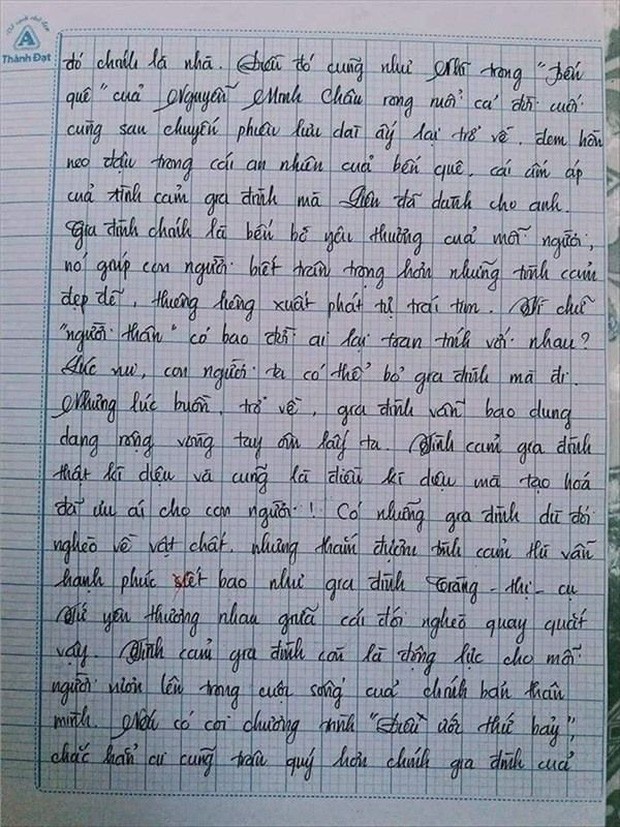 Thành Đạt
đó chính là nhà. Điều đó cũng như Nhĩ trong "Bến
quê" của Nguyễn Minh Châu rong ruổi cả đời cuối
cùng sau chuyến phiêu lưu dài ấy lại trở về, đem hồn
neo đậu trong cái an nhiên của bến quê, cái ấm áp
của tình cảm gia đình mà Liên đã dành cho anh.
Gia đình chính là bến bờ yêu thương của mỗi người,
nó giúp con người biết trân trọng hơn những tình cảm
đẹp đẽ, thương liêng xuất phát từ trái tim. Vì chữ
"người thân" có bao đời ai lại toan tính với nhau?
Lúc vui, con người ta có thể bỏ gia đình mà đi.
Nhưng lúc buồn, trở về, gia đình vẫn bao dung
dang rộng vòng tay ôm lấy ta. Tình cảm gia đình
thật kì diệu và cũng là điều kì diệu mà tạo hoá
đã ưu ái cho con người! Có những gia đình dù đói
nghèo về vật chất, nhưng thắm đượm tình cảm thì vẫn
hạnh phúc biết bao như gia đình Tràng - thị - cụ
Tứ yêu thương nhau giữa cái đói nghèo quay quắt
vậy. Tình cảm gia đình còn là động lực cho mỗi
người vươn lên trong cuộc sống của chính bản thân
mình. Nếu có coi chương trình "Điều ước thứ bảy",
chắc hẳn ai cũng trân quý hơn chính gia đình của